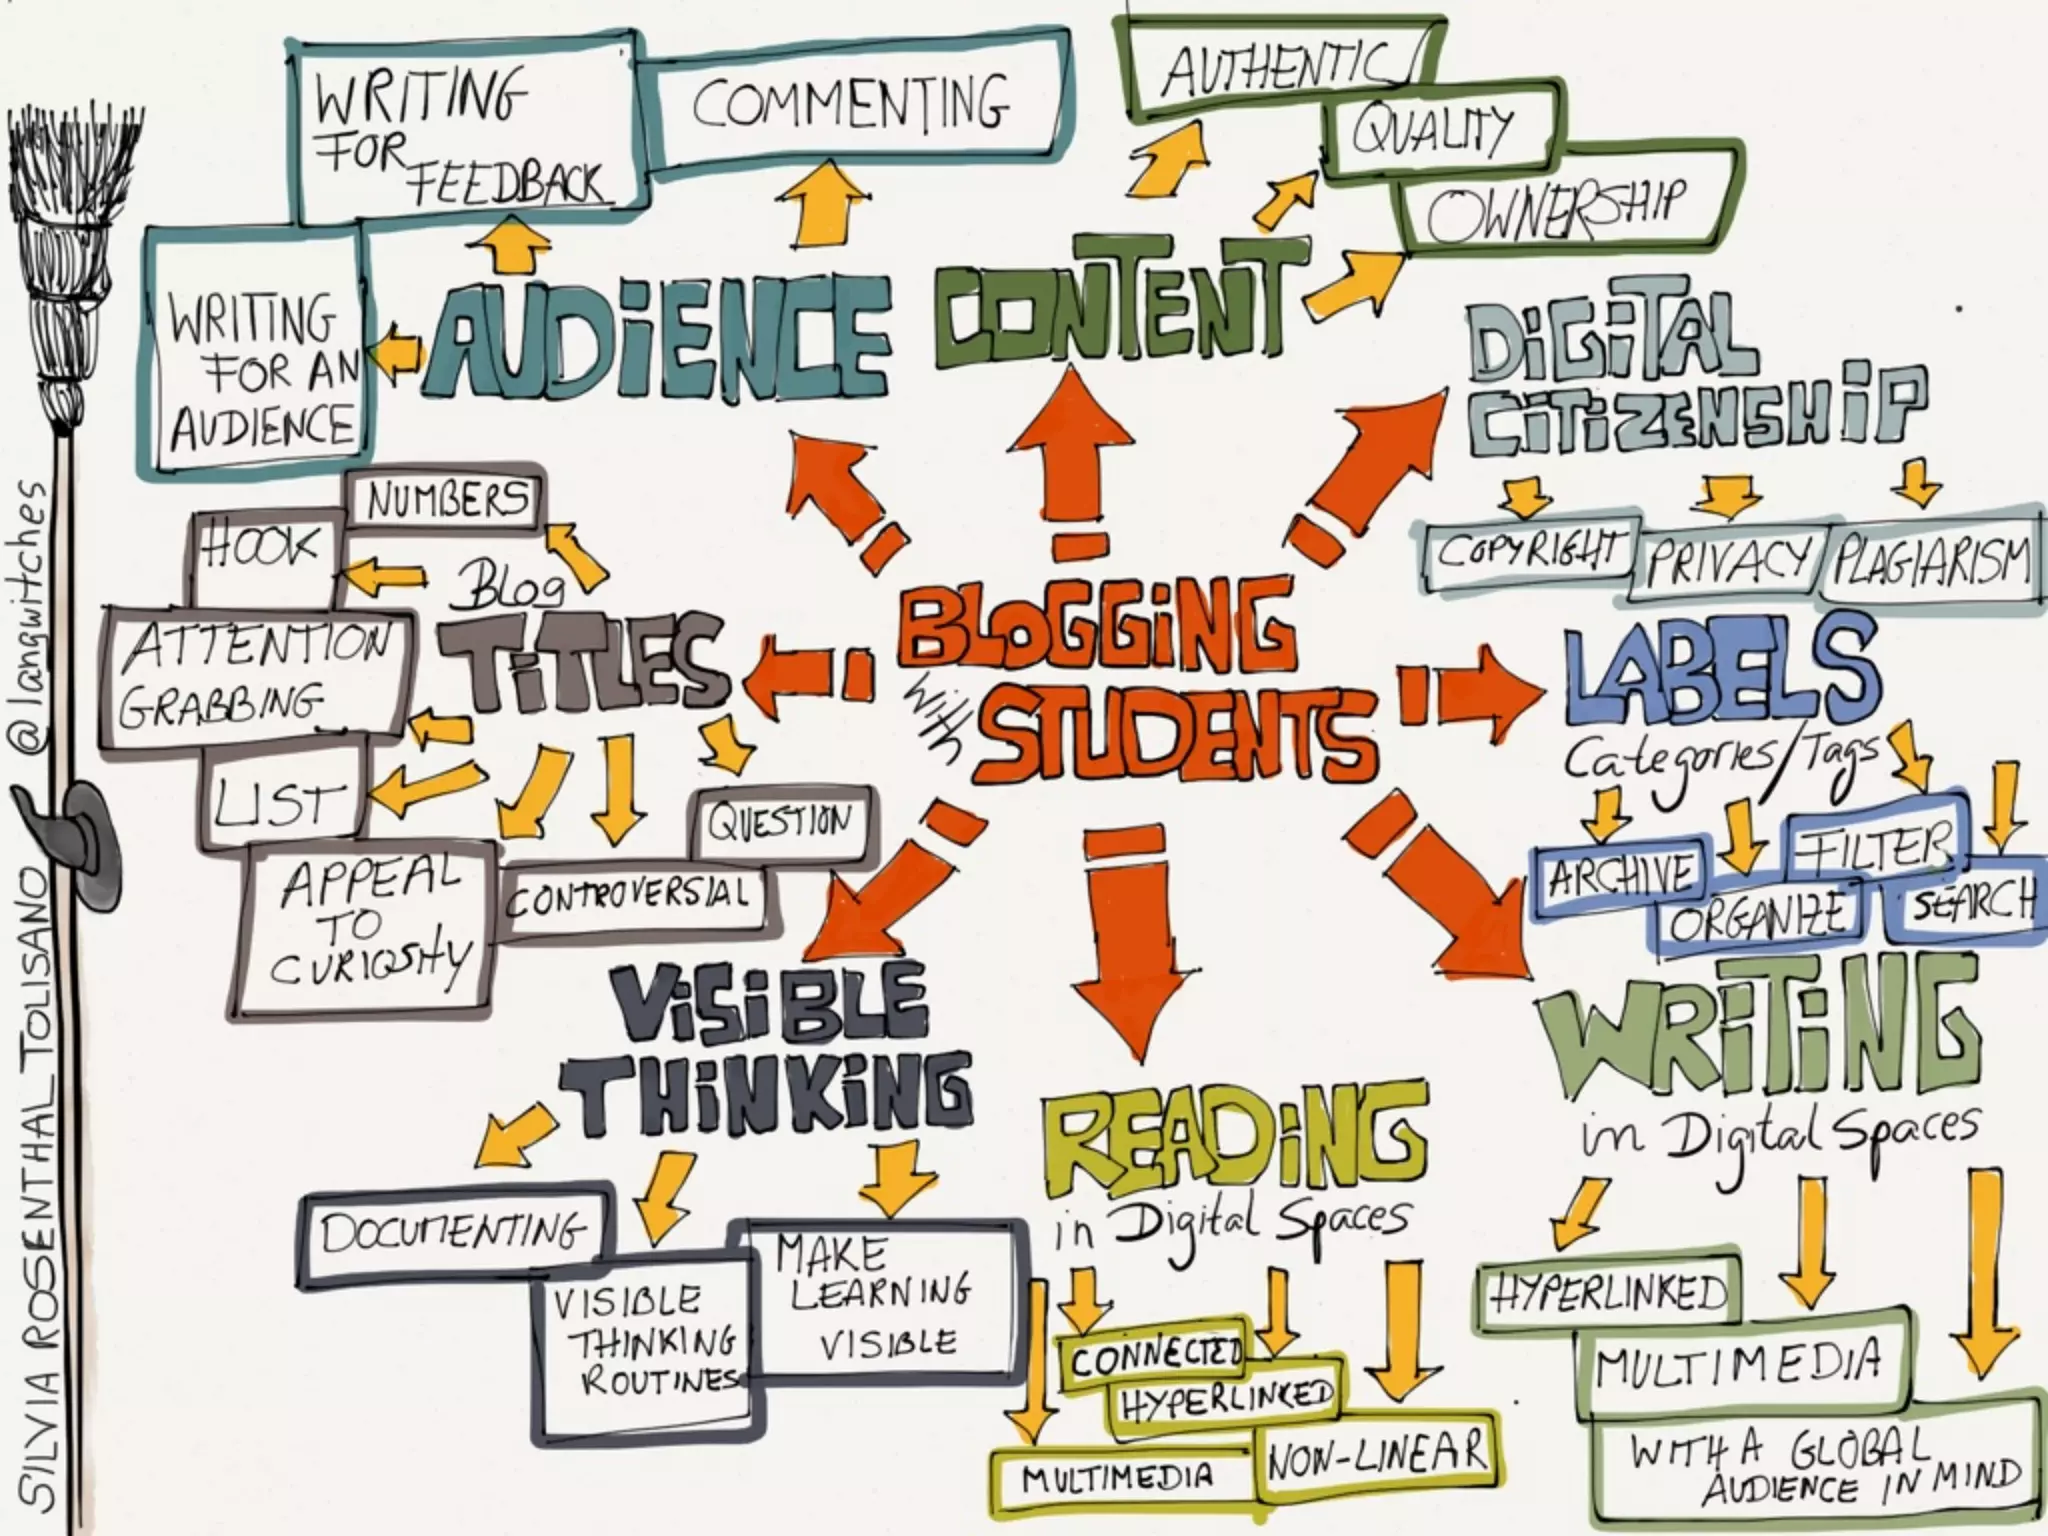 WRITING
FOR
FEEDBACK
COMMENTING
WRITING
FOR AN
AUDIENCE
AUDiENCE
AUTHENTIC
QUALITY
OWNERSHIP
CONTENT
DiGiTAL
CiTiZENSHiP
COPYRIGHT
PRIVACY
PLAGIARISM
NUMBERS
HOOK
ATTENTION
GRABBING
LIST
APPEAL
TO
CURIOSITY
CONTROVERSIAL
QUESTION
Blog
TiTLES
BLOGGiNG
with
STUDENTS
LABELS
Categories/Tags
ARCHIVE
ORGANIZE
FILTER
SEARCH
ViSiBLE
THiNKiNG
DOCUMENTING
VISIBLE
THINKING
ROUTINES
MAKE
LEARNING
VISIBLE
READiNG
in Digital Spaces
CONNECTED
HYPERLINKED
MULTIMEDIA
NON-LINEAR
WRiTiNG
in Digital Spaces
HYPERLINKED
MULTIMEDIA
WITH A GLOBAL
AUDIENCE IN MIND
SILVIA ROSENTHAL TOLISANO @langwitches